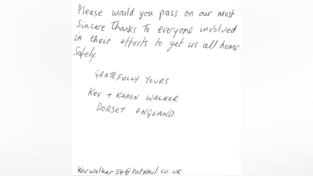 Please would you pass on our most
Sincere Thanks to everyone involved
in their efforts to get us all home
Safely.
GRATEFULLY YOURS
KEV + KAREN WALKER
DORSET ENGLAND.
kevwalker54@hotmail.co.uk